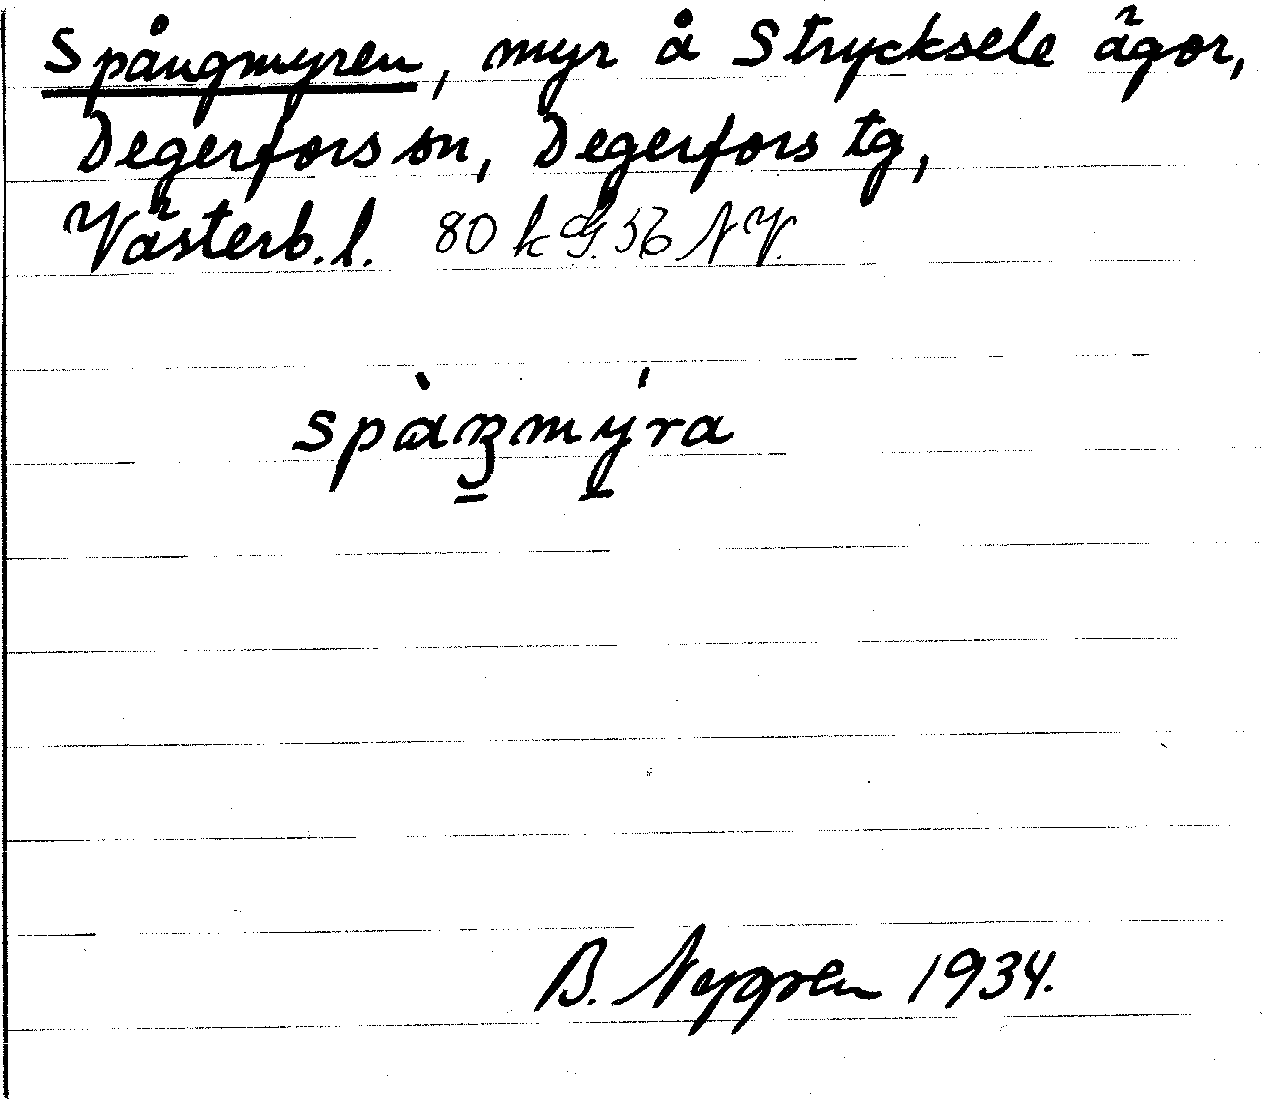 Spångmyren, myr å Strycksele ägor,
Degerfors sn, Degerfors tg,
Västerb. l. 80 k G. 36 N V.
spàŋmýra
B. Nygren 1934.